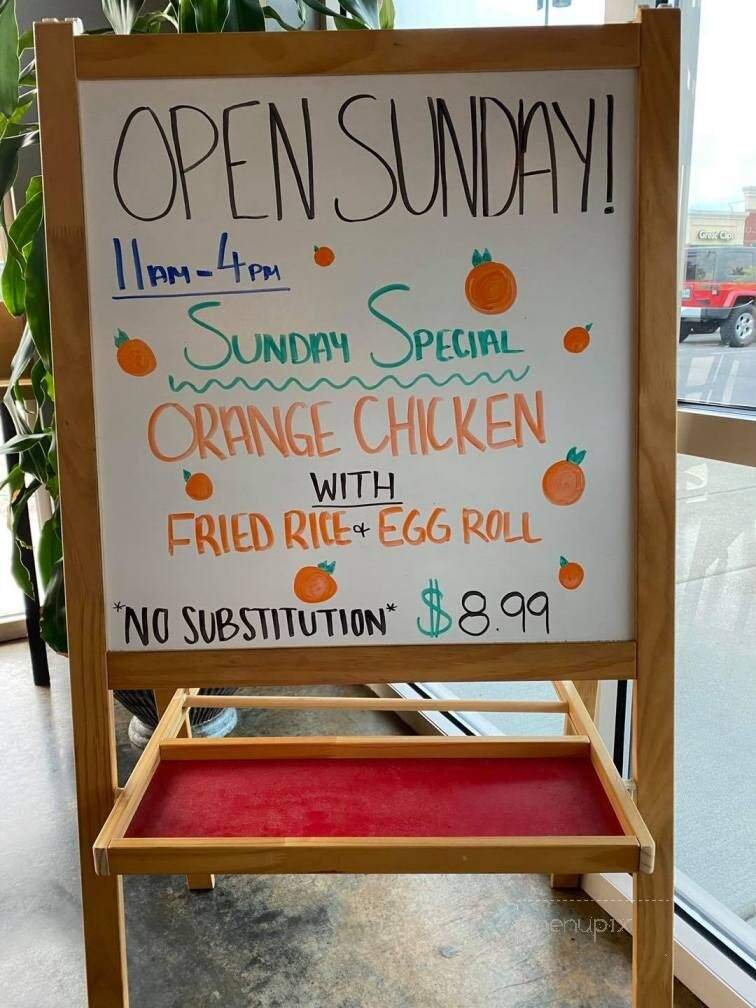 OPEN SUNDAY!
11AM-4PM
SUNDAY SPECIAL
ORANGE CHICKEN
WITH
FRIED RICE & EGG ROLL
*NO SUBSTITUTION* $8.99
Great Clips
menupix